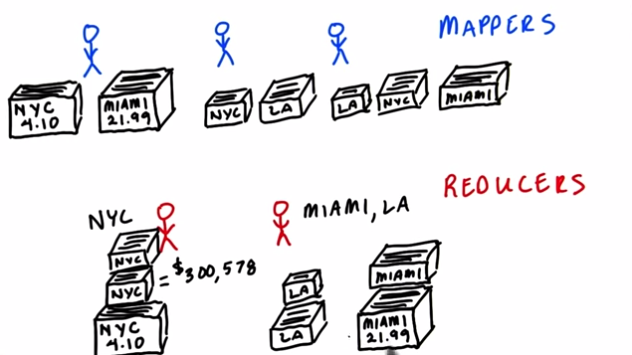 MAPPERS
NYC
4.10
MIAMI
21.99
NYC
LA
LA
NYC
MIAMI
REDUCERS
NYC
MIAMI, LA
NYC
NYC
= $300,578
NYC
4.10
LA
LA
MIAMI
MIAMI
21.99